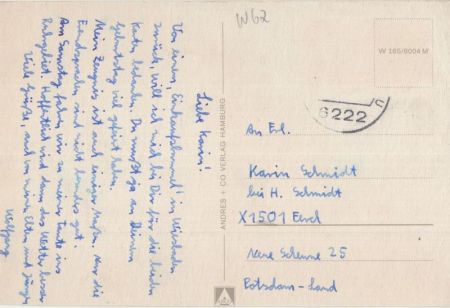 Liebe Karin!
Von einem "Einkaufsbummel" in Wiesbaden
zurück, will ich mich bei Dir für die lieben
Karten bedanken. Du mußt ja an Deinem
Geburtstag viel gefeiert haben.
Mein Zeugnis ist auch einigermaßen. Nur die
Fremdsprachen sind nicht besonders gut.
Am Samstag fahren wir zu meiner Tante ins
Ruhrgebiet. Hoffentlich wird dann das Wetter besser
Viele Grüße, auch von meinen Eltern und Jürgen
Wolfgang
ANDRES + CO VERLAG HAMBURG
W62
W 165/8004 M
6222
An Frl.
Karin Schmidt
bei H. Schmidt
X1501 
Neue Scheune 25
Potsdam-Land